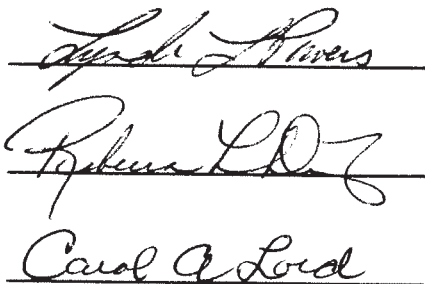 Lynda L Powers
Rebecca L
Carol A Lord